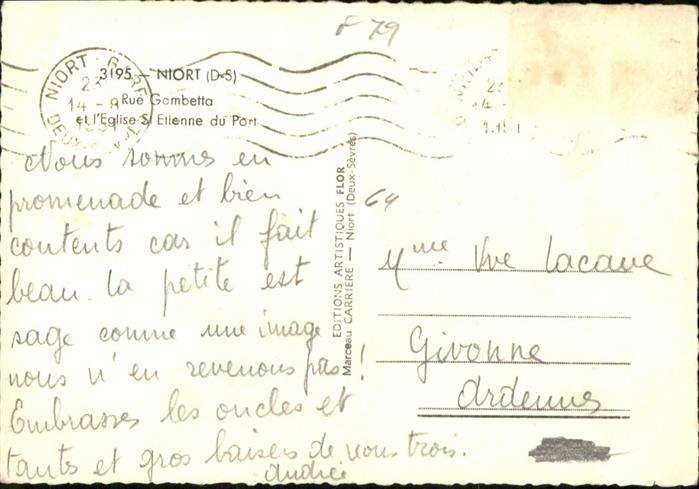 F 79
3195. — NIORT (D-S)
Rue Gambetta
et l'Eglise St Etienne du Port
NIORT - GARE
14 - 8
DEUX
Nous sommes en
promenade et bien
contents car il fait
beau. la petite est
sage comme une image
nous n'en revenons pas!
Embrasses les oncles et
tantes et gros baisers de nous trois.
Andrée
EDITIONS ARTISTIQUES FLOR
Marceau CARRIERE — Niort (Deux-Sèvres)
64
Mme Vve Lacave
Givonne
Ardennes